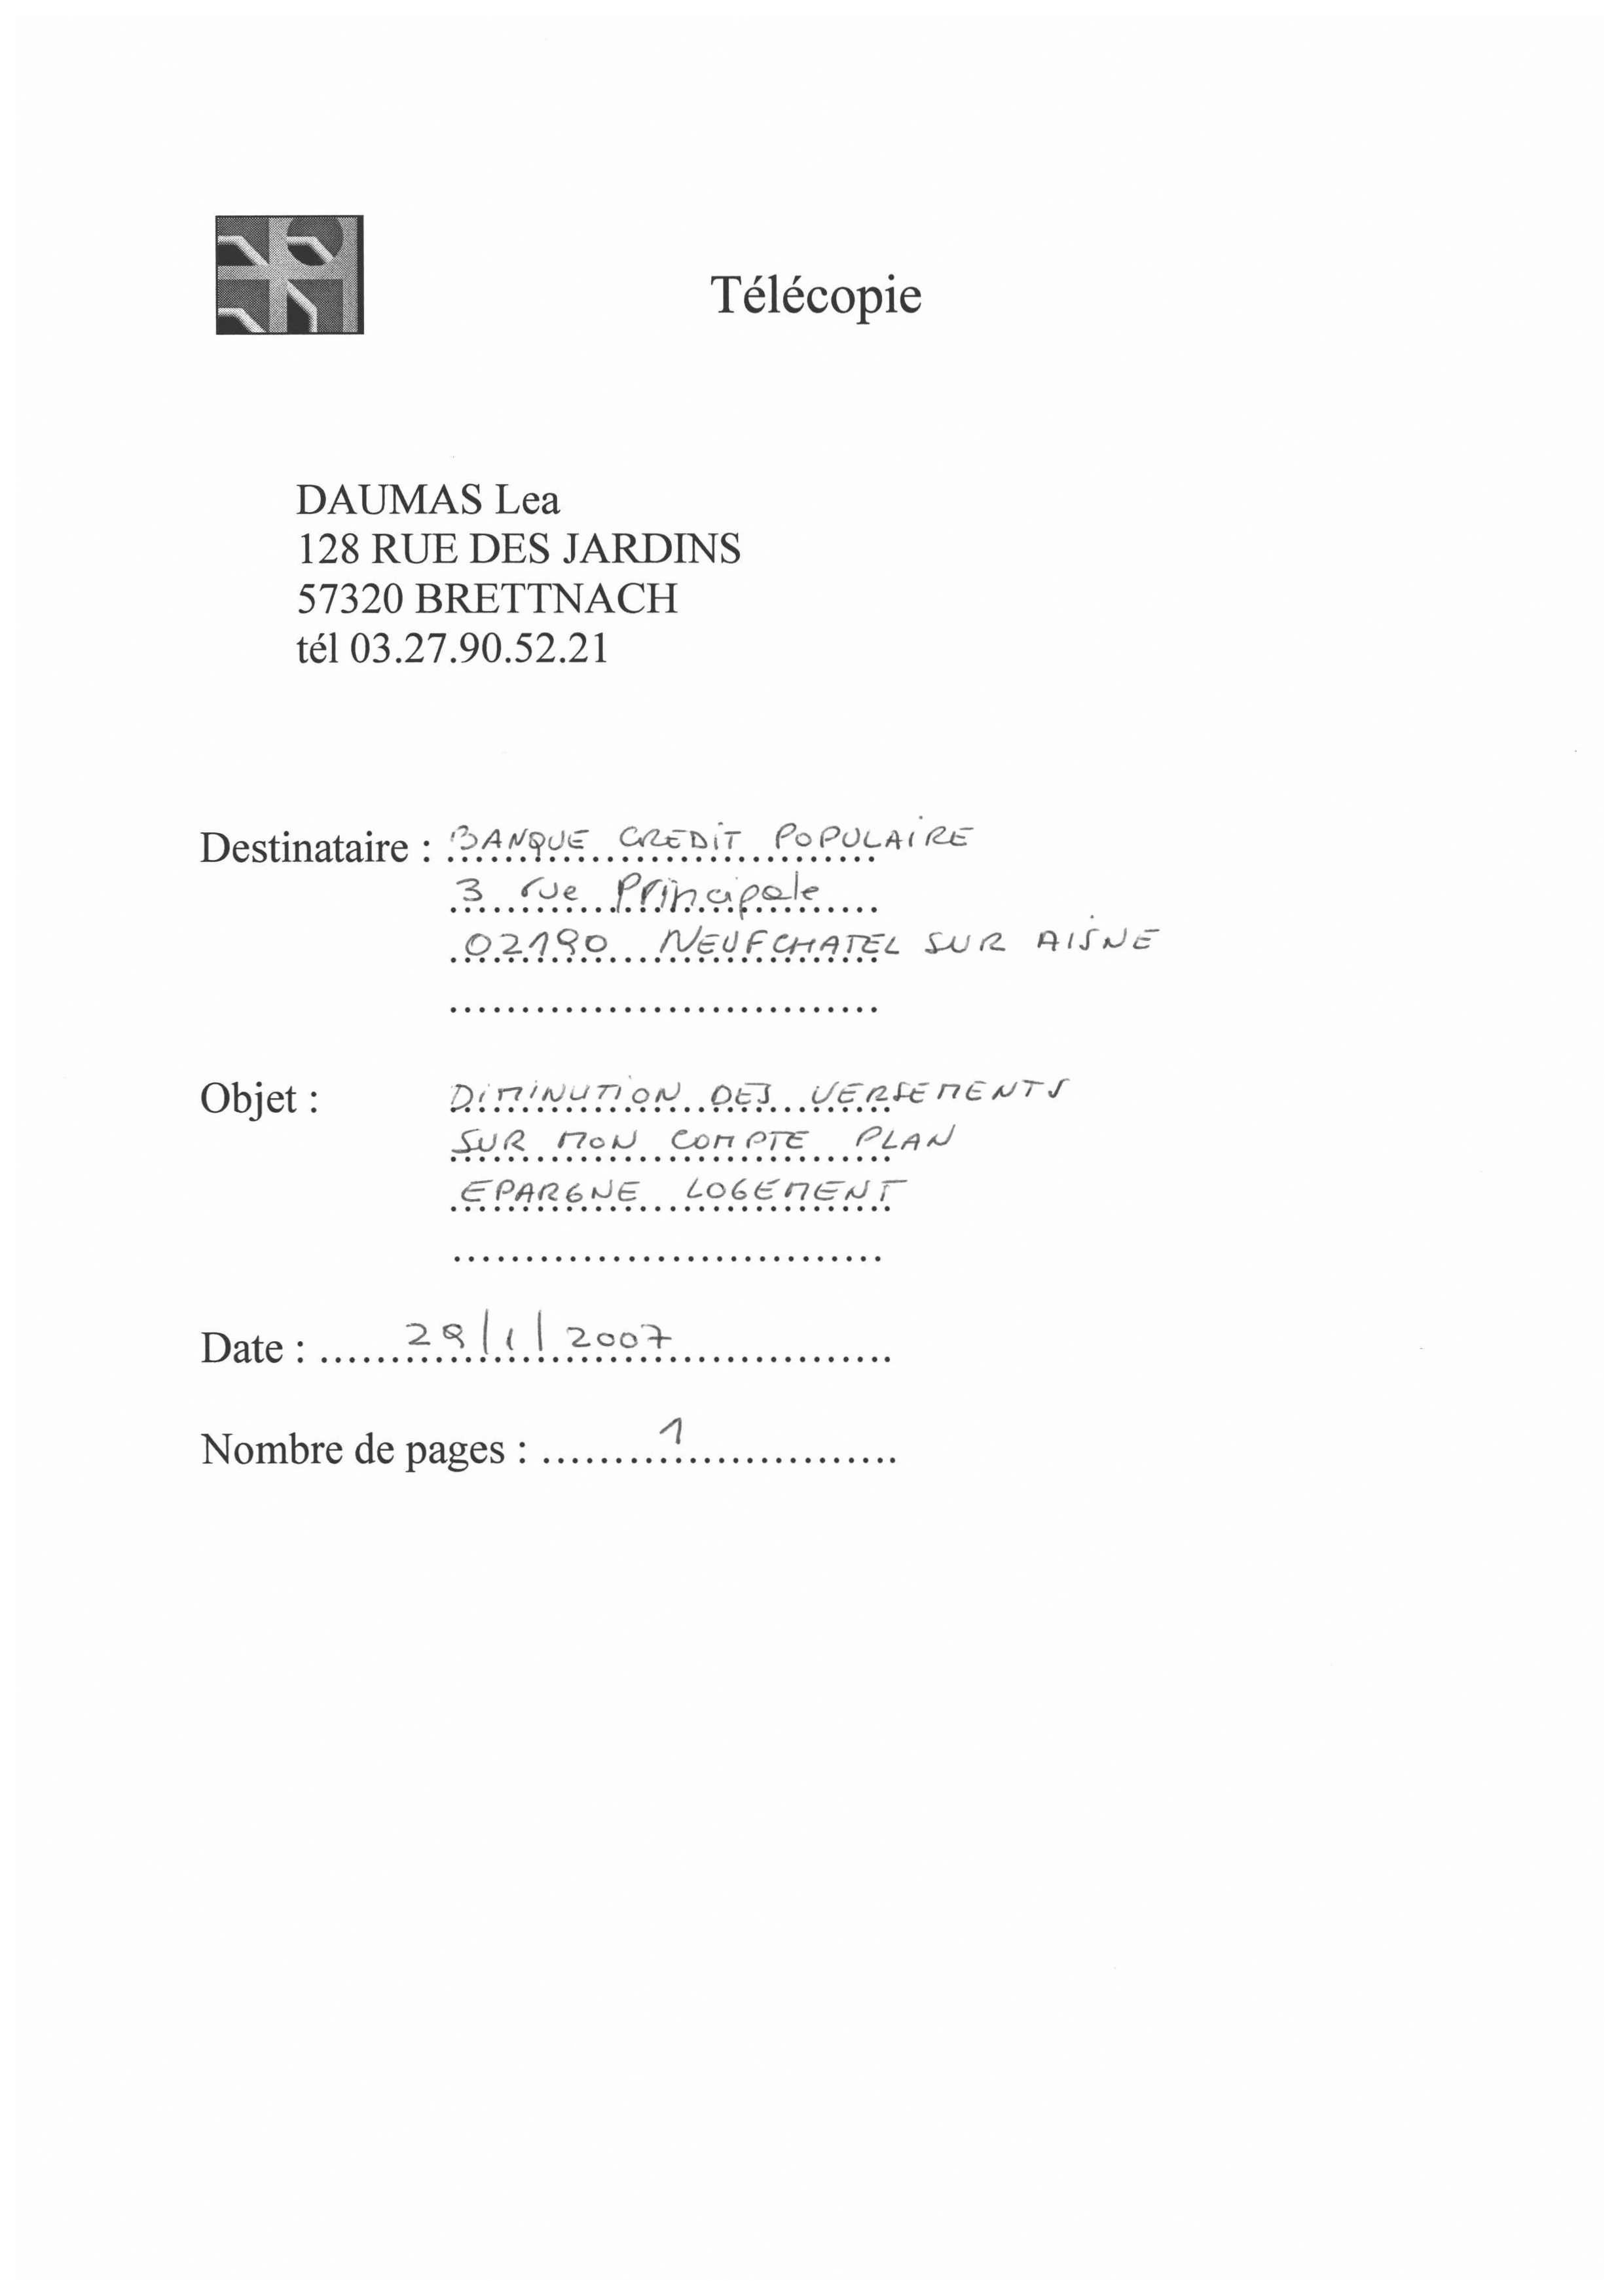 Télécopie
DAUMAS Lea
128 RUE DES JARDINS
57320 BRETTNACH
tél 03.27.90.52.21
Destinataire : BANQUE CREDIT POPULAIRE
3 rue Principale
02190 NEUFCHATEL SUR AISNE
Objet : DIMINUTION DES VERSEMENTS
SUR MON COMPTE PLAN
EPARGNE LOGEMENT
Date : 28/1/2007
Nombre de pages : 1